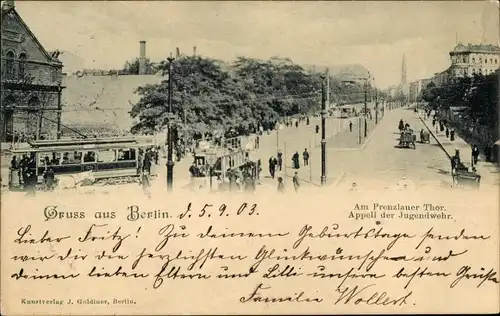 Am Prenzlauer Thor.
Appell der Jugendwehr.
Gruss aus Berlin. d 5. 9. 03.
Lieber Fritz! Zu Deinem Geburtstage senden
wir dir die herzlichsten Glückwünsche und
deinen lieben Eltern und Lilli unsere besten Grüße
Familie Wollert.
Kunstverlag J. Goldiner, Berlin.